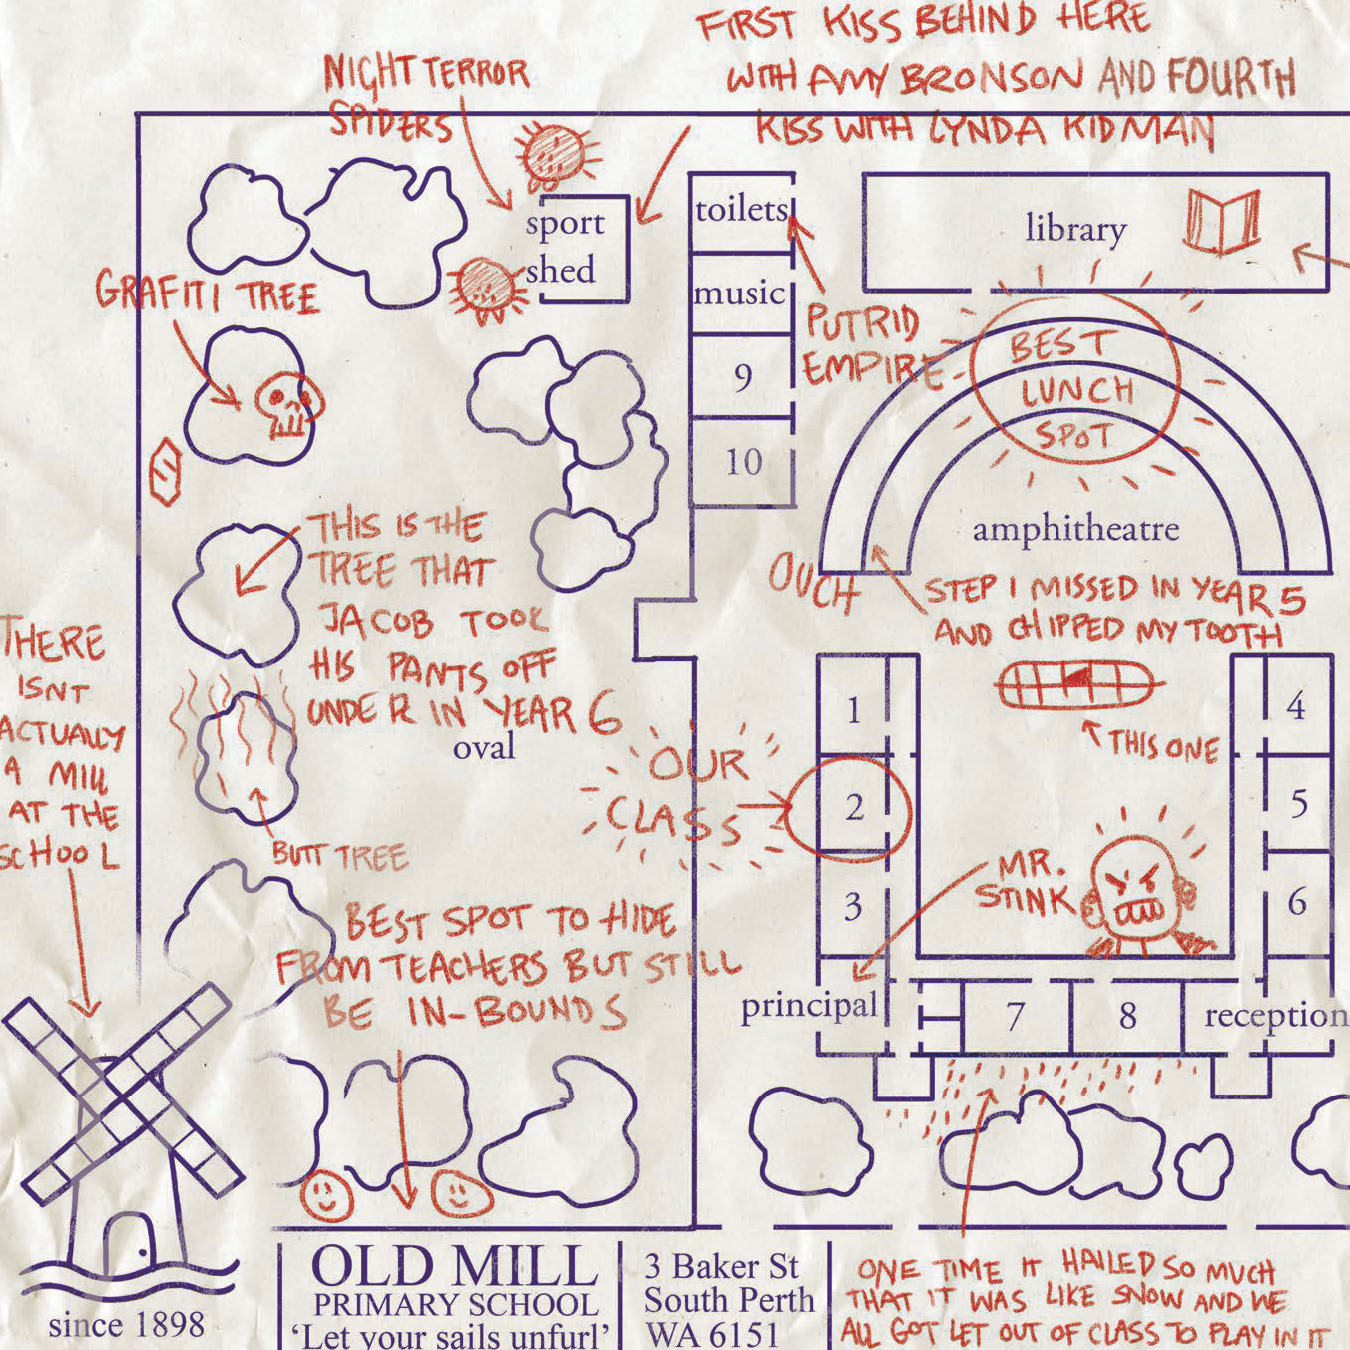 FIRST KISS BEHIND HERE
WITH AMY BRONSON AND FOURTH
KISS WITH LYNDA KIDMAN
NIGHT TERROR
SPIDERS
sport
shed
toilets
music
9
10
library
GRAFITI TREE
PUTRID
EMPIRE
BEST
LUNCH
SPOT
amphitheatre
OUCH
STEP I MISSED IN YEAR 5
AND CHIPPED MY TOOTH
THIS ONE
THIS IS THE
TREE THAT
JACOB TOOK
HIS PANTS OFF
UNDER IN YEAR 6
oval
THERE
ISNT
ACTUALLY
A MILL
AT THE
SCHOOL
OUR
CLASS
1
2
3
4
5
6
BUTT TREE
MR.
STINK
BEST SPOT TO HIDE
FROM TEACHERS BUT STILL
BE IN-BOUNDS
principal
7
8
reception
since 1898
OLD MILL
PRIMARY SCHOOL
'Let your sails unfurl'
3 Baker St
South Perth
WA 6151
ONE TIME IT HAILED SO MUCH
THAT IT WAS LIKE SNOW AND WE
ALL GOT LET OUT OF CLASS TO PLAY IN IT